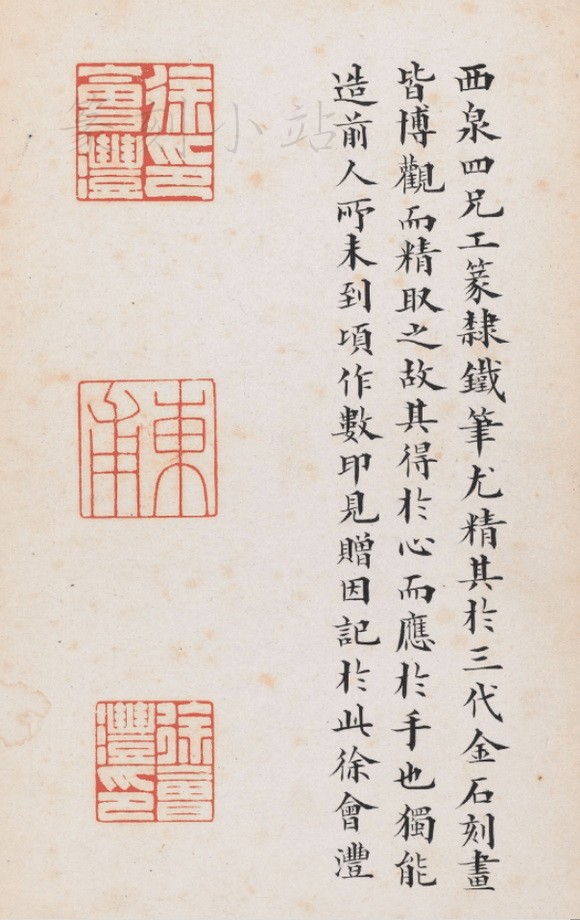 西泉四兄工篆隸鐵筆尤精其於三代金石刻畫
皆博觀而精取之故其得於心而應於手也獨能
造前人所未到頃作數印見贈因記於此徐會灃
徐印會灃
東甫
徐會灃印
篆刻小站